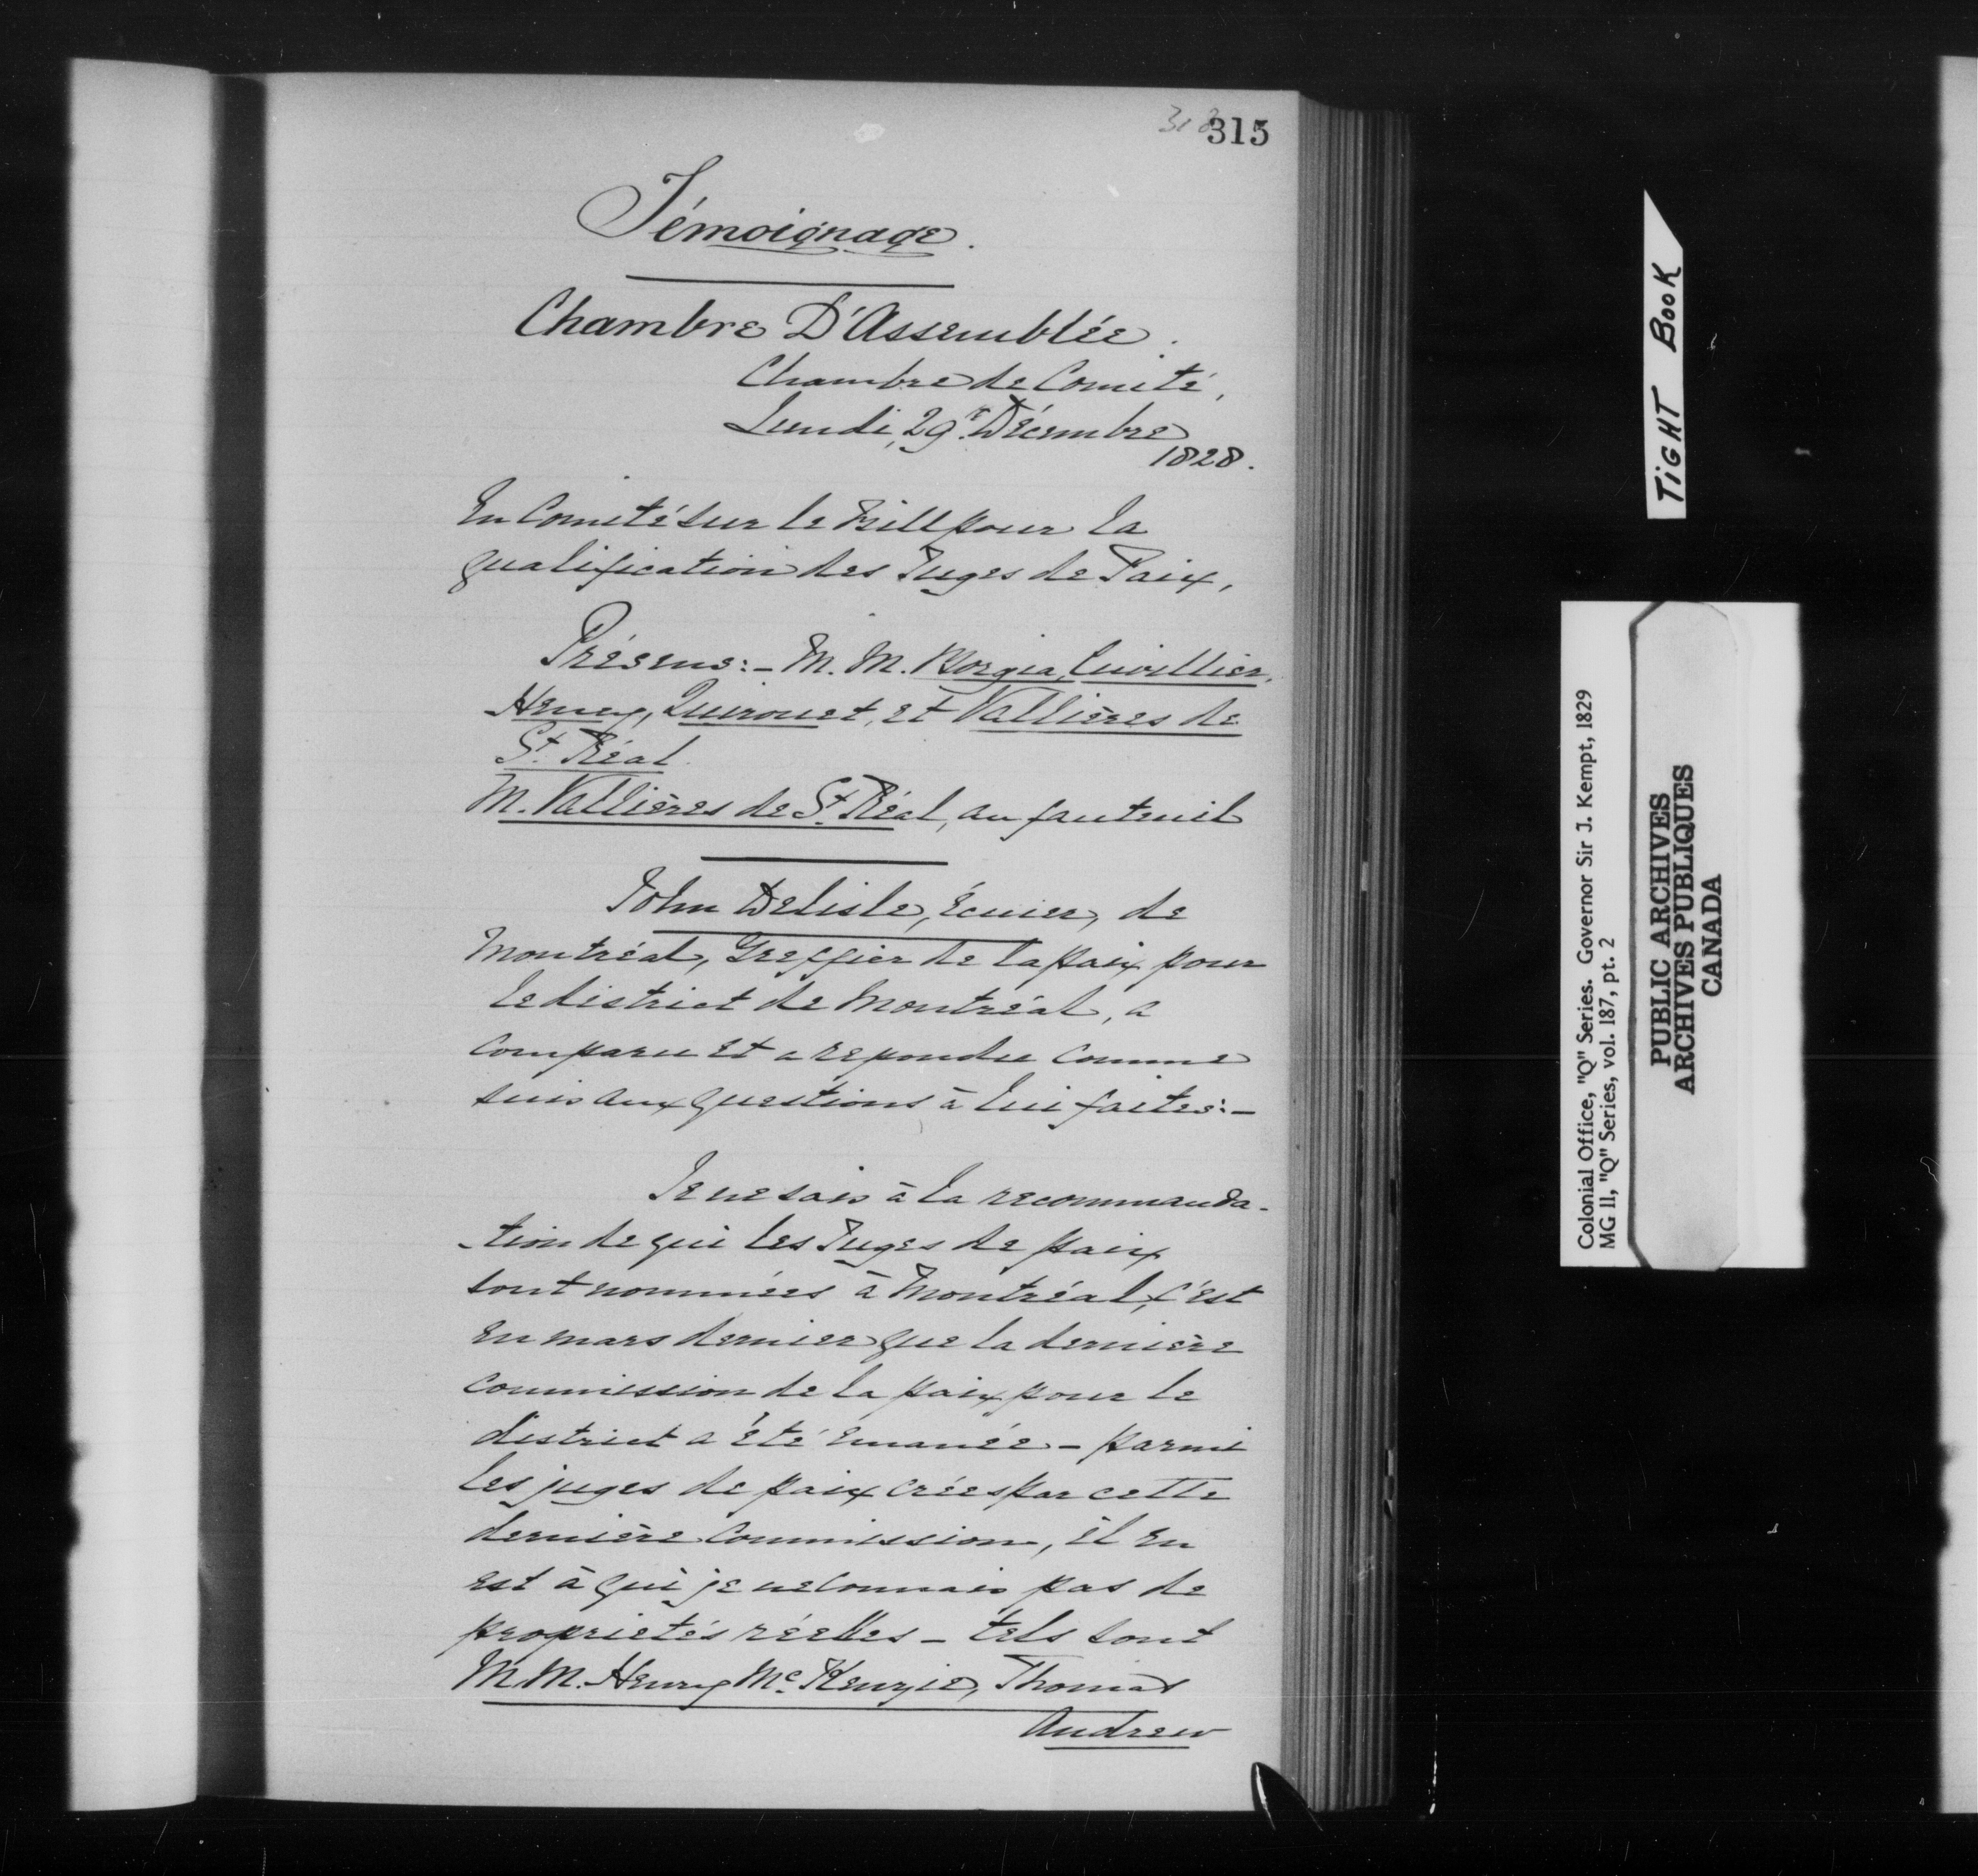 315
Témoignage.
Chambre D'Assemblée.
Chambre de Comité,
Lundi, 29e Décembre
1828.
En Comité sur le Bill pour la
qualification des Juges de Paix,
Présens:- M. M. Borgia, Cuvillier,
Heney, Quirouet, et Vallières de
St. Réal.
M. Vallières de St. Réal, au fauteuil
John Delisle, Écuier, de
Montréal, Greffier de la paix pour
le district de Montréal, a
comparu et a repondu comme
suis aux questions à lui faites:-
Je ne sais à la recommanda-
-tion de qui les Juges de paix
sont nommées à Montréal, c'est
en mars dernier que la dernière
commission de la paix pour le
district a été émanée - parmi
les juges de paix créés par cette
dernière Commission, il en
est à qui je ne connais pas de
propriétés réelles - tels sont
M.M. Henry Mc. Kenzie, Thomas
Andrew
TIGHT BOOK
Colonial Office, "Q" Series. Governor Sir J. Kempt, 1829
MG 11, "Q" Series, vol. 187, pt. 2
PUBLIC ARCHIVES
ARCHIVES PUBLIQUES
CANADA